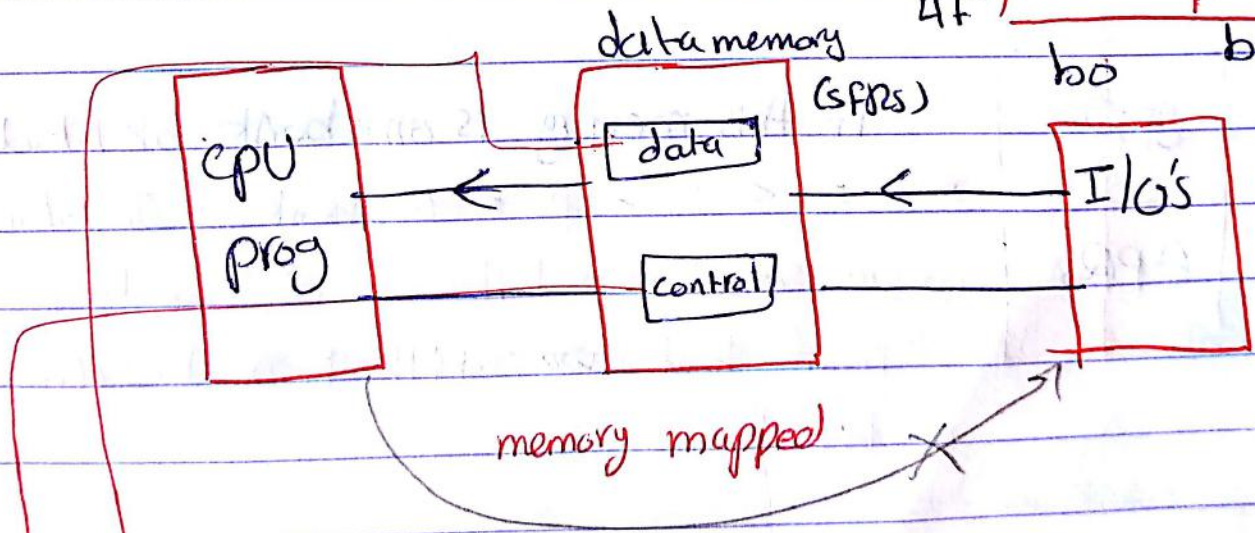 4f
b0 b
data memory
(SFRs)
CPU
prog
data
control
I/O's
memory mapped